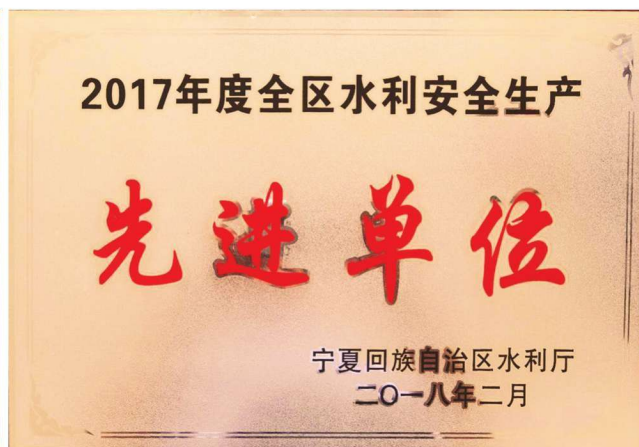 2017年度全区水利安全生产
先进单位
宁夏回族自治区水利厅
二〇一八年二月